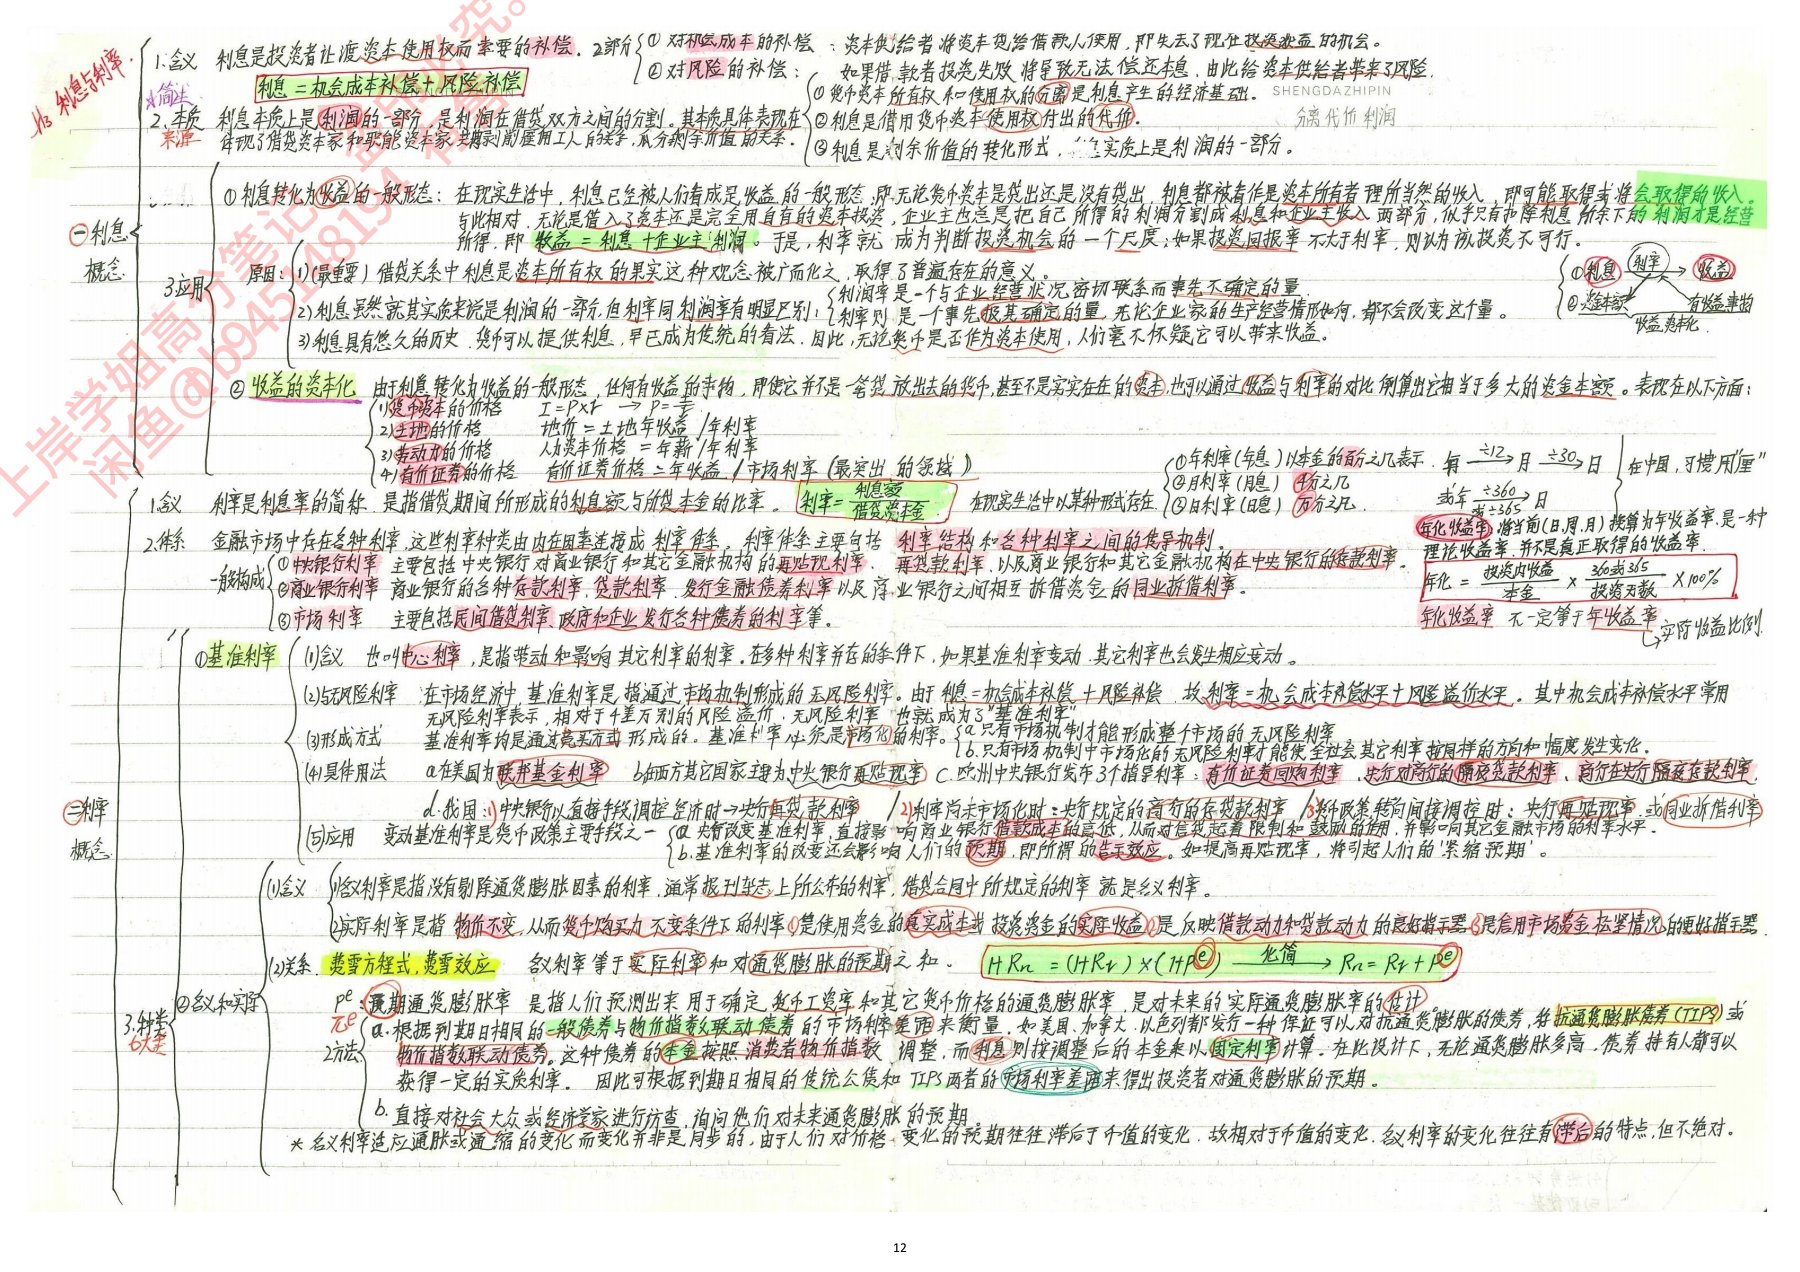 h3 利息与利率.
一 利息概念
1.含义 利息是投资者让渡资本使用权而索要的补偿. 2部分
① 对机会成本的补偿 : 资本供给者将资本贷给借款人使用, 即失去了现在投资收益的机会。
② 对风险的补偿: 如果借款者投资失败将导致无法偿还本息, 由此给资本供给者带来了风险.
利息 = 机会成本补偿 + 风险补偿
☆简述
SHENGDAZHIPIN
分离 代价 利润
2.本质 利息本质上是利润的一部分, 是利润在借贷双方之间的分割. 其本质具体表现在
来源 体现了借贷资本家和职能资本家共同剥削雇佣工人的关系, 瓜分剩余价值的关系.
① 货币资本所有权和使用权的分离是利息产生的经济基础.
② 利息是借用货币资本使用权付出的代价.
③ 利息是剩余价值的转化形式, 实质上是利润的一部分.
3应用
① 利息转化为收益的一般形态: 在现实生活中, 利息已经被人们看成是收益的一般形态, 即无论货币资本是贷出还是没有贷出, 利息都被看作是资本所有者理所当然的收入, 即可能取得或将会取得的收入.
与此相对, 无论是借入了资本还是完全用自有的资本投资, 企业主也总是把自己所得的利润分割成利息和企业主收入两部分, 似乎只有扣除利息所余下的利润才是经营
所得, 即 收益 = 利息 + 企业主利润. 于是, 利率就成为判断投资机会的一个尺度; 如果投资回报率不大于利率, 则认为该投资不可行.
原因: 1)(最重要) 借贷关系中利息是资本所有权的果实这种观念被广而化之, 取得了普遍存在的意义.
2)利息虽然就其实质来说是利润的一部分,但利率同利润率有明显区别:
利润率是一个与企业经营状况密切联系而事先不确定的量.
利率则是一个事先极其确定的量, 无论企业家的生产经营情形如何, 都不会改变这个量.
3)利息具有悠久的历史. 货币可以提供利息, 早已成为传统的看法. 因此, 无论货币是否作为资本使用, 人们毫不怀疑它可以带来收益.
①利息 利率 收益
有收益事物
收益资本化
② 收益的资本化 由于利息转化为收益的一般形态, 任何有收益的事物, 即使它并不是一笔贷放出去的货币, 甚至不是实实在在的资本, 也可以通过收益与利率的对比倒算出它相当于多大的资金本额. 表现在以下方面:
1)货币资本的价格 I=P×r → P=I/r
2)土地的价格 地价=土地年收益/年利率
3)劳动力的价格 人力资本价格 =年薪/年利率
4)有价证券的价格 有价证券价格=年收益/市场利率 (最突出的领域)
二 利率概念
1.含义 利率是利息率的简称. 是指借贷期间所形成的利息额与所贷本金的比率. 利率=利息额/借贷资本金 在现实生活中以某种形式存在
①年利率(年息)以本金的百分之几表示.
②月利率(月息) 千分之几
③日利率(日息) 万分之几.
年 ÷12→ 月 ÷30→ 日
或年 ÷360 或÷365 → 日
在中国, 习惯用"厘"
年化收益率: 将当前(日,周,月)换算为年收益率. 是一种
理论收益率. 并不是真正取得的收益率.
年化 = 投资内收益/本金 × 360或365/投资天数 ×100%
年化收益率 不一定等于年收益率
→实际收益比例.
2.体系 金融市场中存在各种利率, 这些利率种类由内在因素连接成利率体系. 利率体系主要包括 利率结构和各种利率之间的传导机制.
一般构成
①中央银行利率 主要包括中央银行对商业银行和其它金融机构的再贴现利率、再贷款利率, 以及商业银行和其它金融机构在中央银行的存款利率.
②商业银行利率 商业银行的各种存款利率, 贷款利率, 发行金融债券利率以及商业银行之间相互拆借资金的同业拆借利率.
③市场利率 主要包括民间借贷利率、政府和企业发行各种债券的利率等.
3.种类 6大类
①基准利率
(1)含义 也叫中心利率, 是指带动和影响其它利率的利率. 在多种利率并存的条件下, 如果基准利率变动, 其它利率也会发生相应变动.
(2)与无风险利率 在市场经济中, 基准利率是指通过市场机制形成的无风险利率. 由于利息=机会成本补偿+风险补偿 故利率=机会成本补偿水平+风险溢价水平. 其中机会成本补偿水平常用
无风险利率表示, 相对于千差万别的风险溢价, 无风险利率也就成为了"基准利率"
(3)形成方式 基准利率均是通过竞买方式形成的. 基准利率必须是市场化的利率.
a.只有市场机制才能形成整个市场的无风险利率
b.只有市场机制中市场化的无风险利率才能使全社会其它利率按同样的方向和幅度发生变化.
(4)具体用法 a.在美国为联邦基金利率 b.在西方其它国家主要为中央银行再贴现率 c.欧洲中央银行发布3个指导利率: 有价证券回购利率、央行对商行的隔夜贷款利率、商行在央行隔夜存款利率.
d.我国: 1)中央银行以直接手段调控经济时→央行存贷款利率 / 2)利率尚未市场化时: 央行规定的商行的存贷款利率 / 3)货币政策转向间接调控时: 央行再贴现率 或同业拆借利率
(5)应用 变动基准利率是货币政策主要手段之一
a.央行改变基准利率, 直接影响商业银行借款成本的高低, 从而对信贷起着限制和鼓励的作用, 并影响其它金融市场的利率水平.
b.基准利率的改变还会影响人们的预期, 即所谓的告示效应. 如提高再贴现率, 将引起人们的'紧缩预期'.
②名义和实际
(1)含义 1)名义利率是指没有剔除通货膨胀因素的利率. 通常报刊杂志上所公布的利率, 借贷合同中所规定的利率就是名义利率.
2)实际利率是指物价不变, 从而货币购买力不变条件下的利率 ①是使用资金的真实成本 投资资金的实际收益 ②是反映借款动力和贷款动力的良好指示器 ③是信用市场资金松紧情况的更好指示器.
(2)关系. 费雪方程式, 费雪效应 名义利率等于实际利率和对通货膨胀的预期之和. (1+Rn)=(1+Rr)×(1+Pe) 化简→ Rn=Rr+Pe
Pe: 预期通货膨胀率 是指人们预测出来用于确定货币工资率和其它货币价格的通货膨胀率, 是对未来的实际通货膨胀率的估计
πe
2方法
a.根据到期日相同的一般债券与物价指数联动债券的市场利率差距来衡量. 如美国, 加拿大, 以色列都发行一种保证可以对抗通货膨胀的债券, 称抗通货膨胀债券(TIPS)或
物价指数联动债券. 这种债券的本金按照消费者物价指数调整, 而利息则按调整后的本金乘以固定利率计算. 在此设计下, 无论通货膨胀多高, 债券持有人都可以
获得一定的实质利率. 因此可根据到期日相同的传统公债和TIPS两者的市场利率差距来得出投资者对通货膨胀的预期.
b.直接对社会大众或经济学家进行访查, 询问他们对未来通货膨胀的预期
* 名义利率适应通胀或通缩的变化而变化并非是同步的, 由于人们对价格变化的预期往往滞后于币值的变化. 故相对于币值的变化. 名义利率的变化往往有滞后的特点, 但不绝对.
上岸学姐高分笔记
闲鱼@tb945148194
12